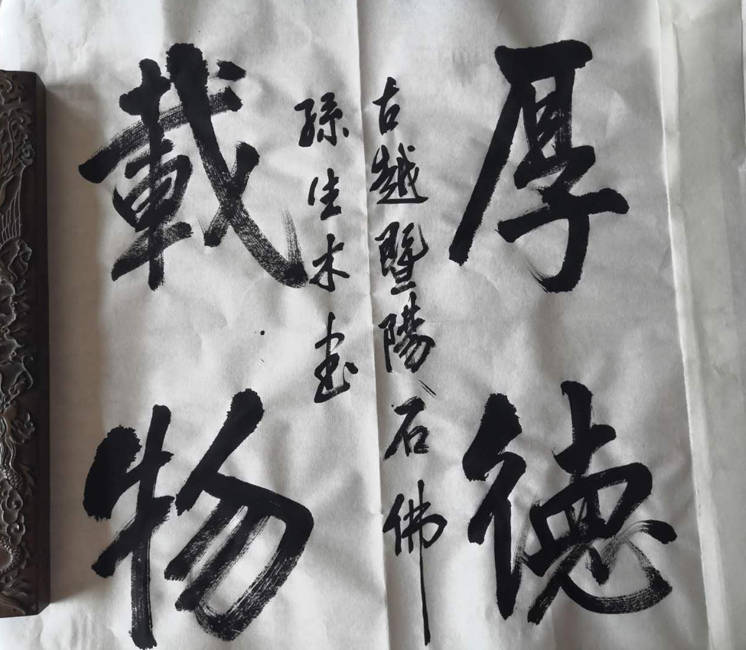 厚德
古越暨陽石佛
孫生木书
載物